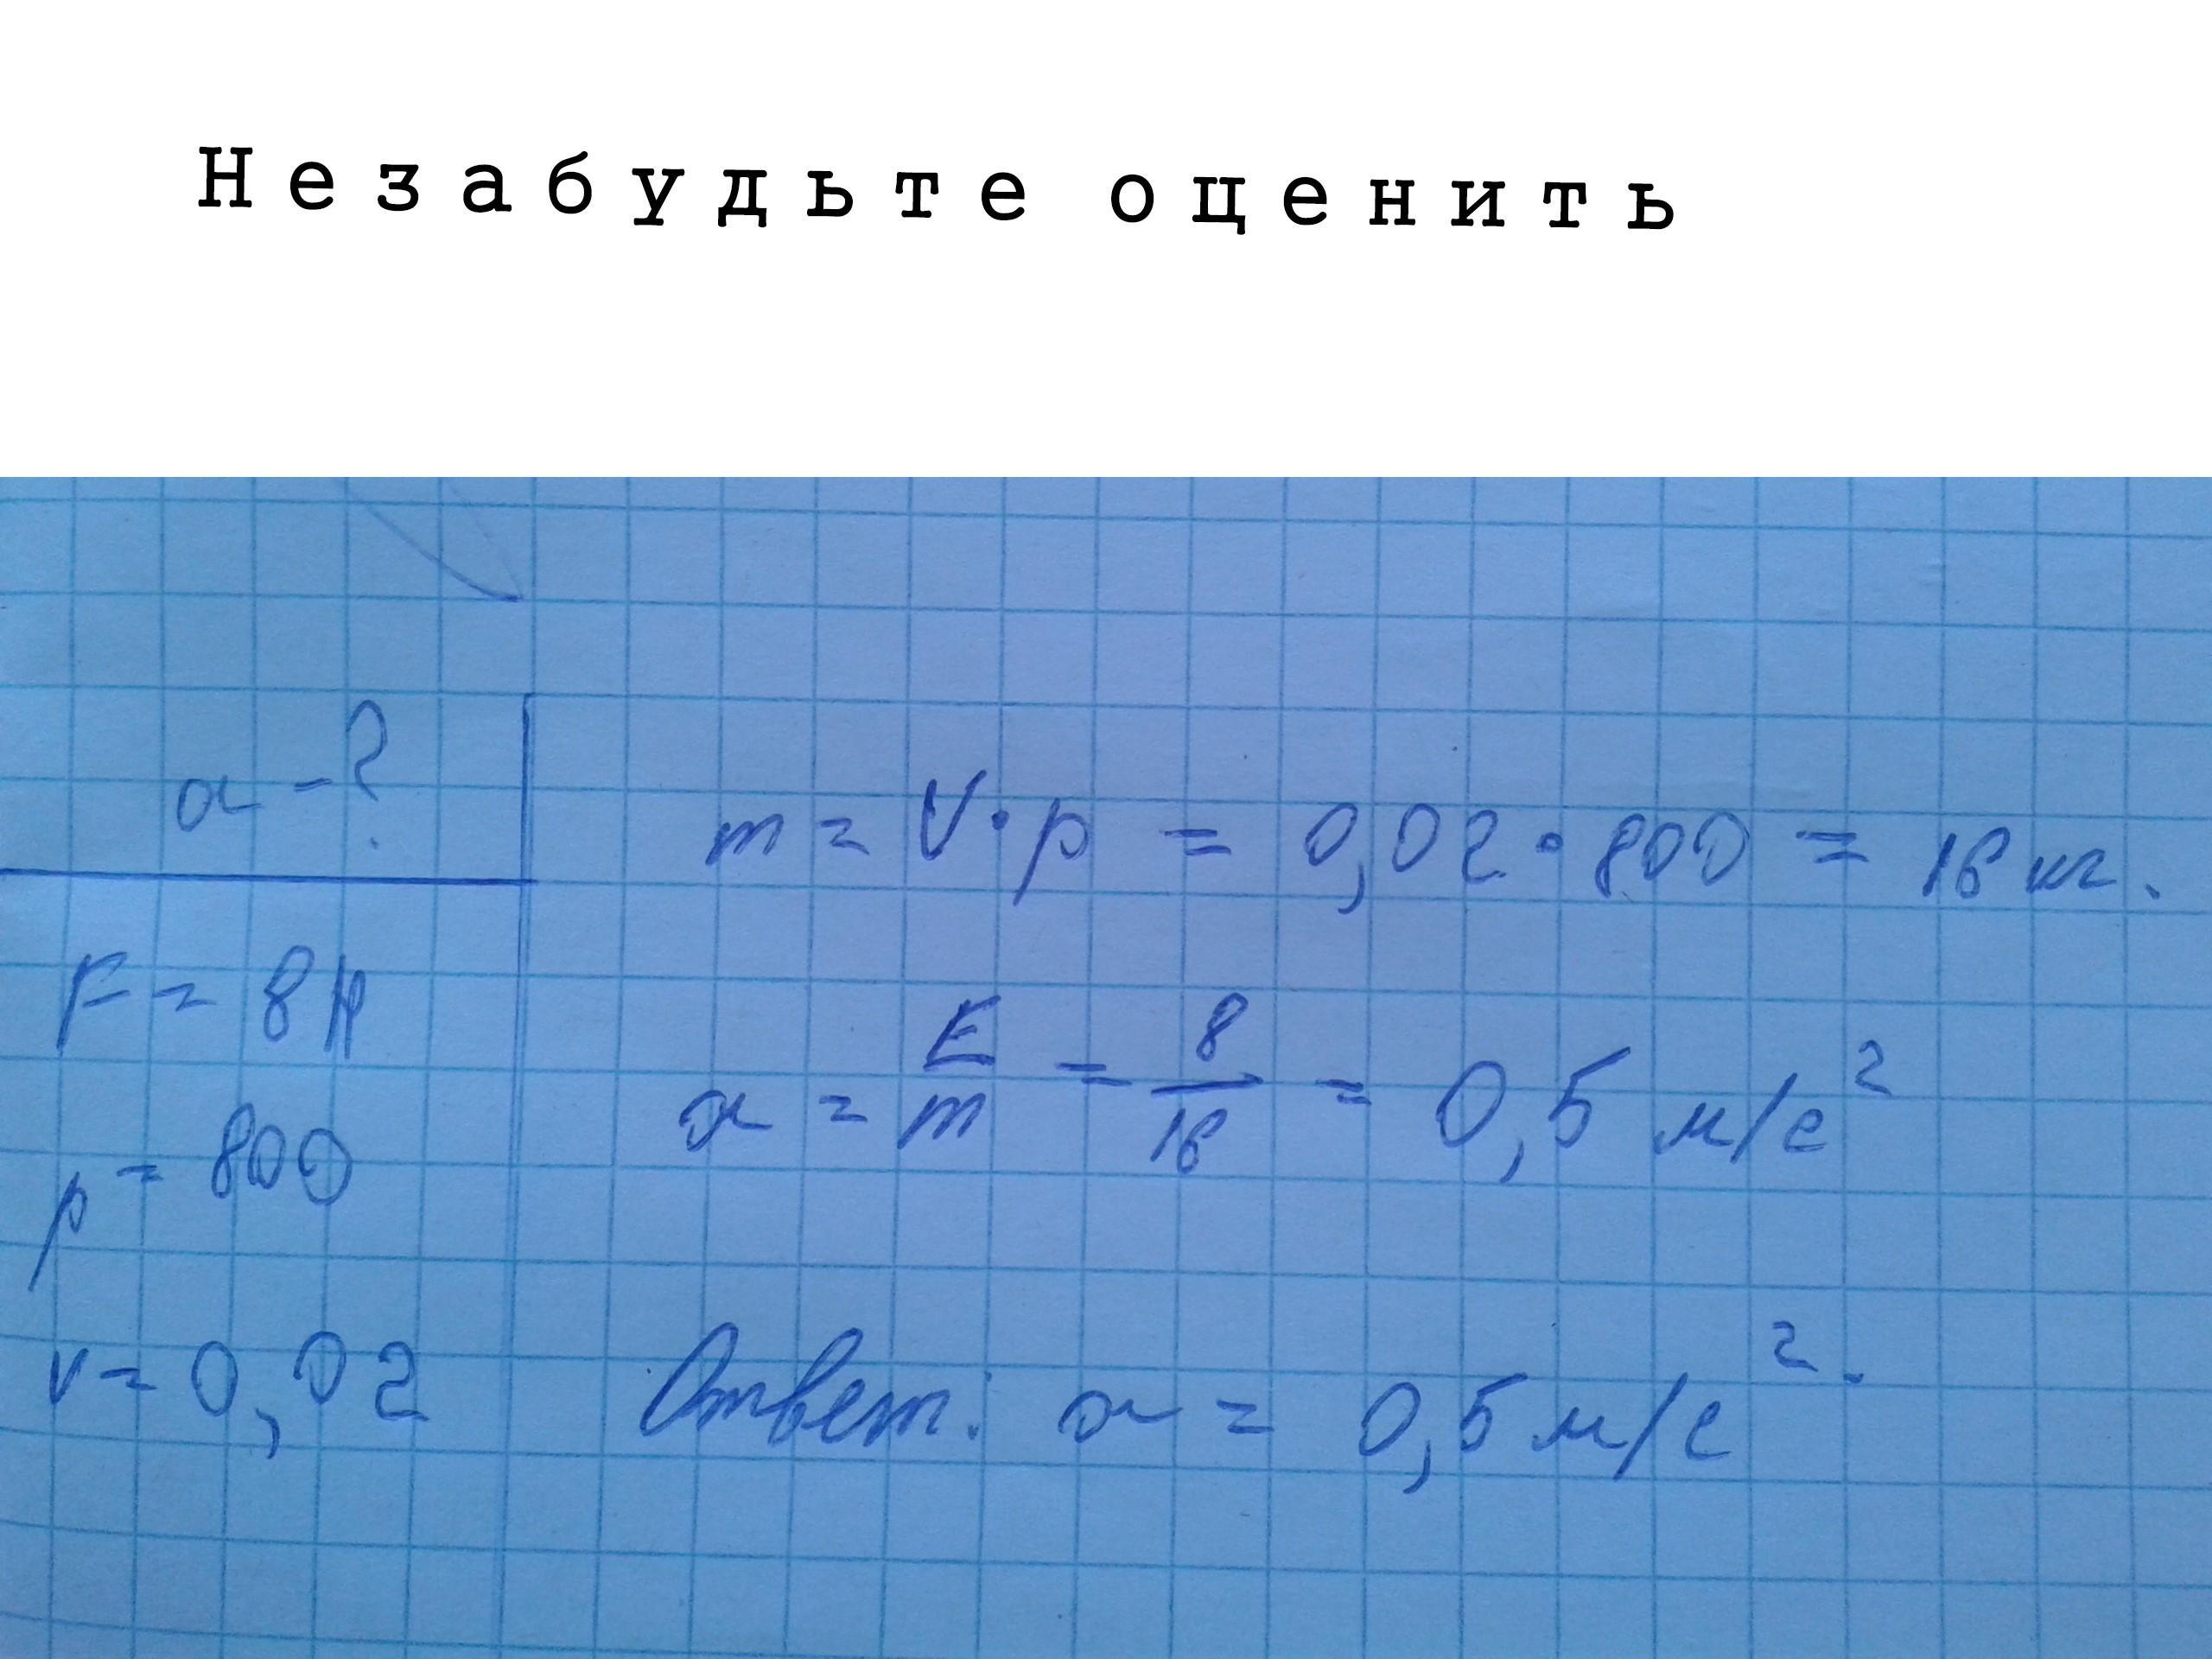 Незабудьте оценить
a - ?
F = 8Н
p = 800
v = 0,02
m = V · p = 0,02 · 800 = 16 кг.
a = F/m = 8/16 = 0,5 м/с²
Ответ: a = 0,5 м/с².